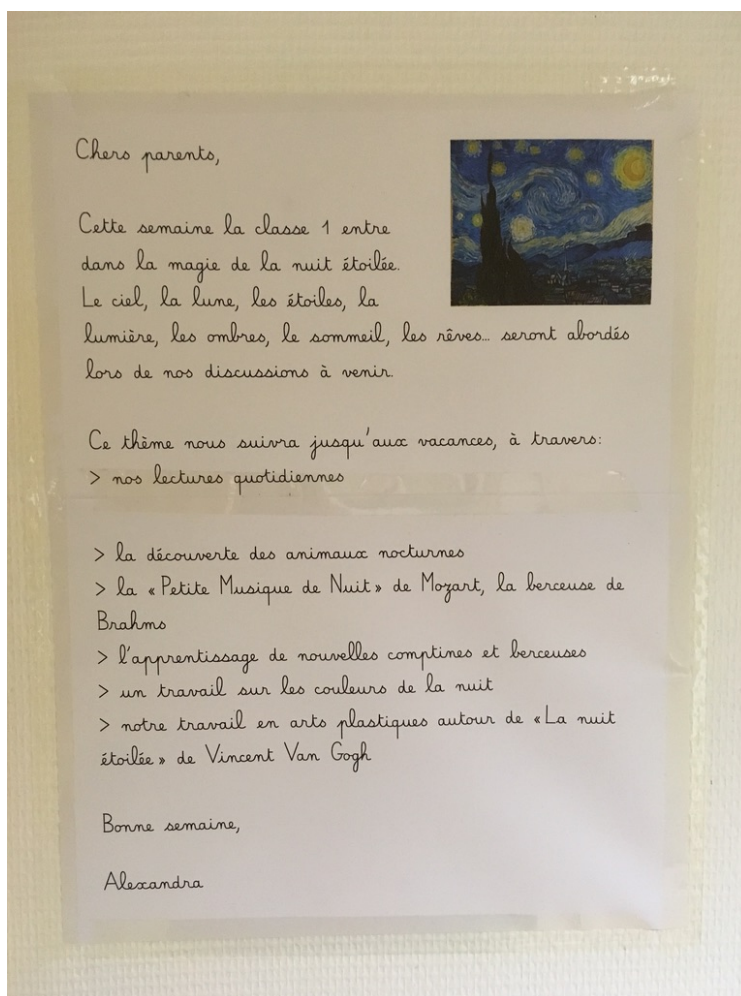 Chers parents,
Cette semaine la classe 1 entre
dans la magie de la nuit étoilée.
Le ciel, la lune, les étoiles, la
lumière, les ombres, le sommeil, les rêves... seront abordés
lors de nos discussions à venir.
Ce thème nous suivra jusqu'aux vacances, à travers:
> nos lectures quotidiennes
> la découverte des animaux nocturnes
> la « Petite Musique de Nuit » de Mozart, la berceuse de
Brahms
> l'apprentissage de nouvelles comptines et berceuses
> un travail sur les couleurs de la nuit
> notre travail en arts plastiques autour de « La nuit
étoilée » de Vincent Van Gogh
Bonne semaine,
Alexandra